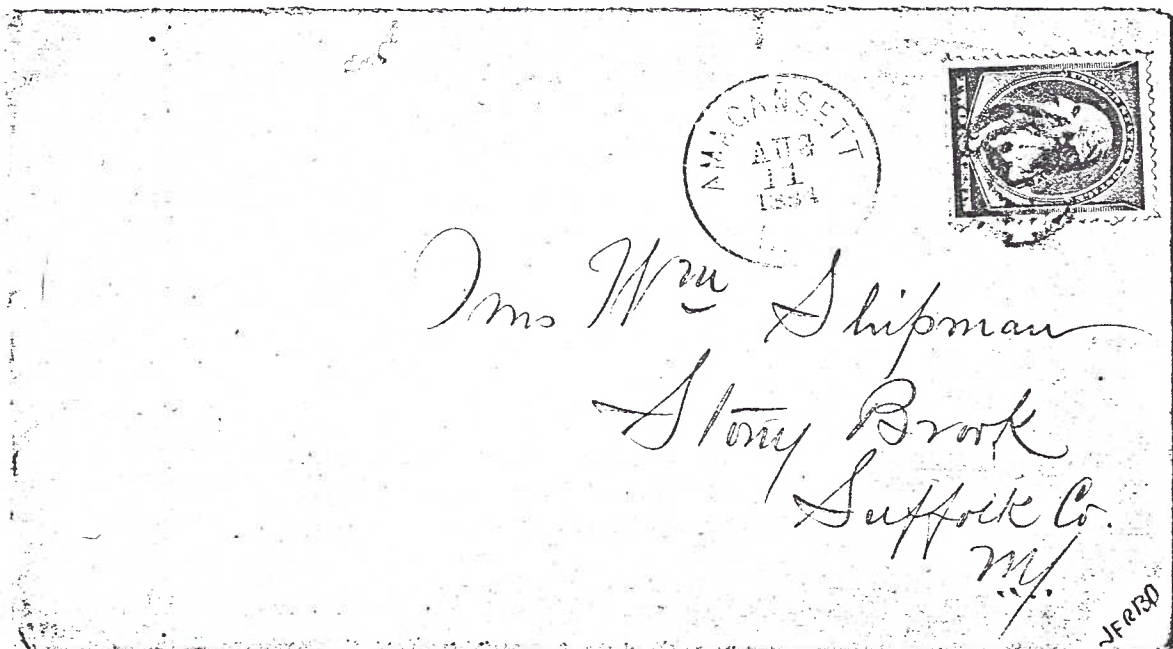 AMAGANSETT
AUG
11
1884
Mrs Wm Shipman
Stony Brook
Suffolk Co.
NY.
JFR130